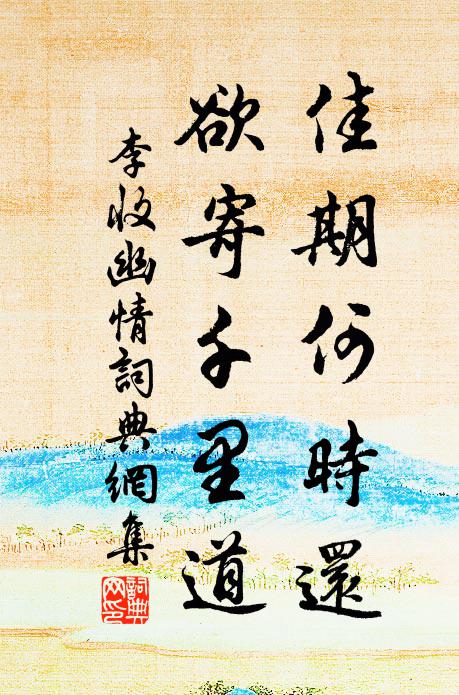 佳期何時還
欲寄千里道
李收幽情詞典網集
詞典网印